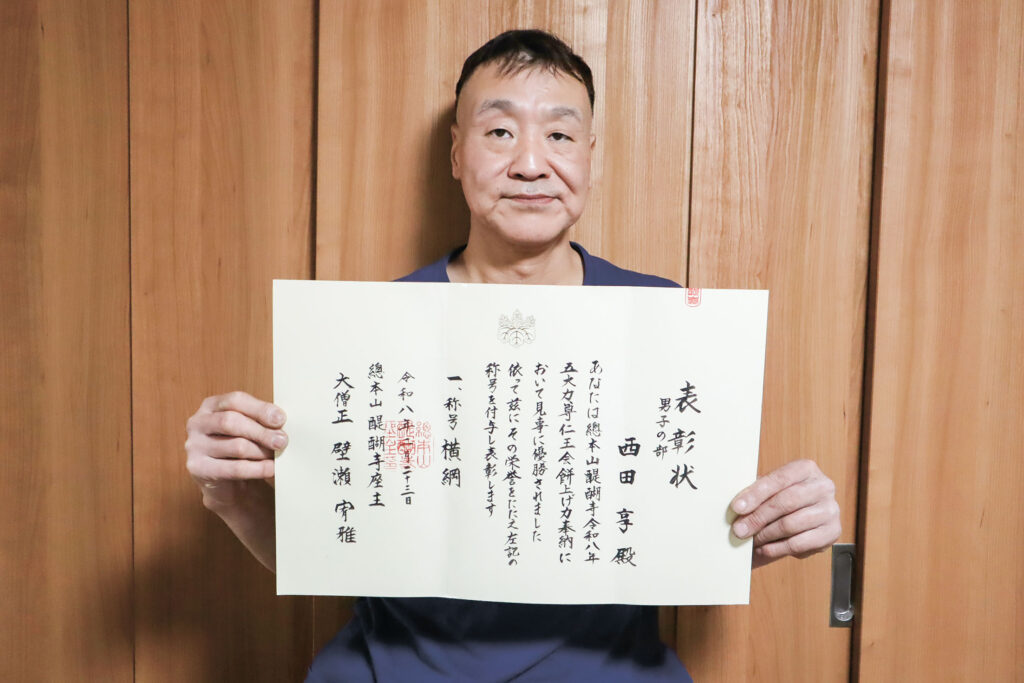 表彰状
男子の部
西田 享 殿
あなたは總本山醍醐寺令和八年
五大力尊仁王会餅上げ力奉納に
おいて見事に優勝されました
依って茲にその栄誉をたたえ左記の
称号を付与し表彰します
一、称号 横綱
令和八年二月二十三日
總本山 醍醐寺座主
大僧正 壁瀬 宥雅